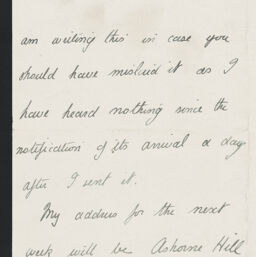 am writing this in case you
should have mislaid it as I
have heard nothing since the
notification of its arrival a day
after I sent it.
My address for the next
week will be Ashorne Hill